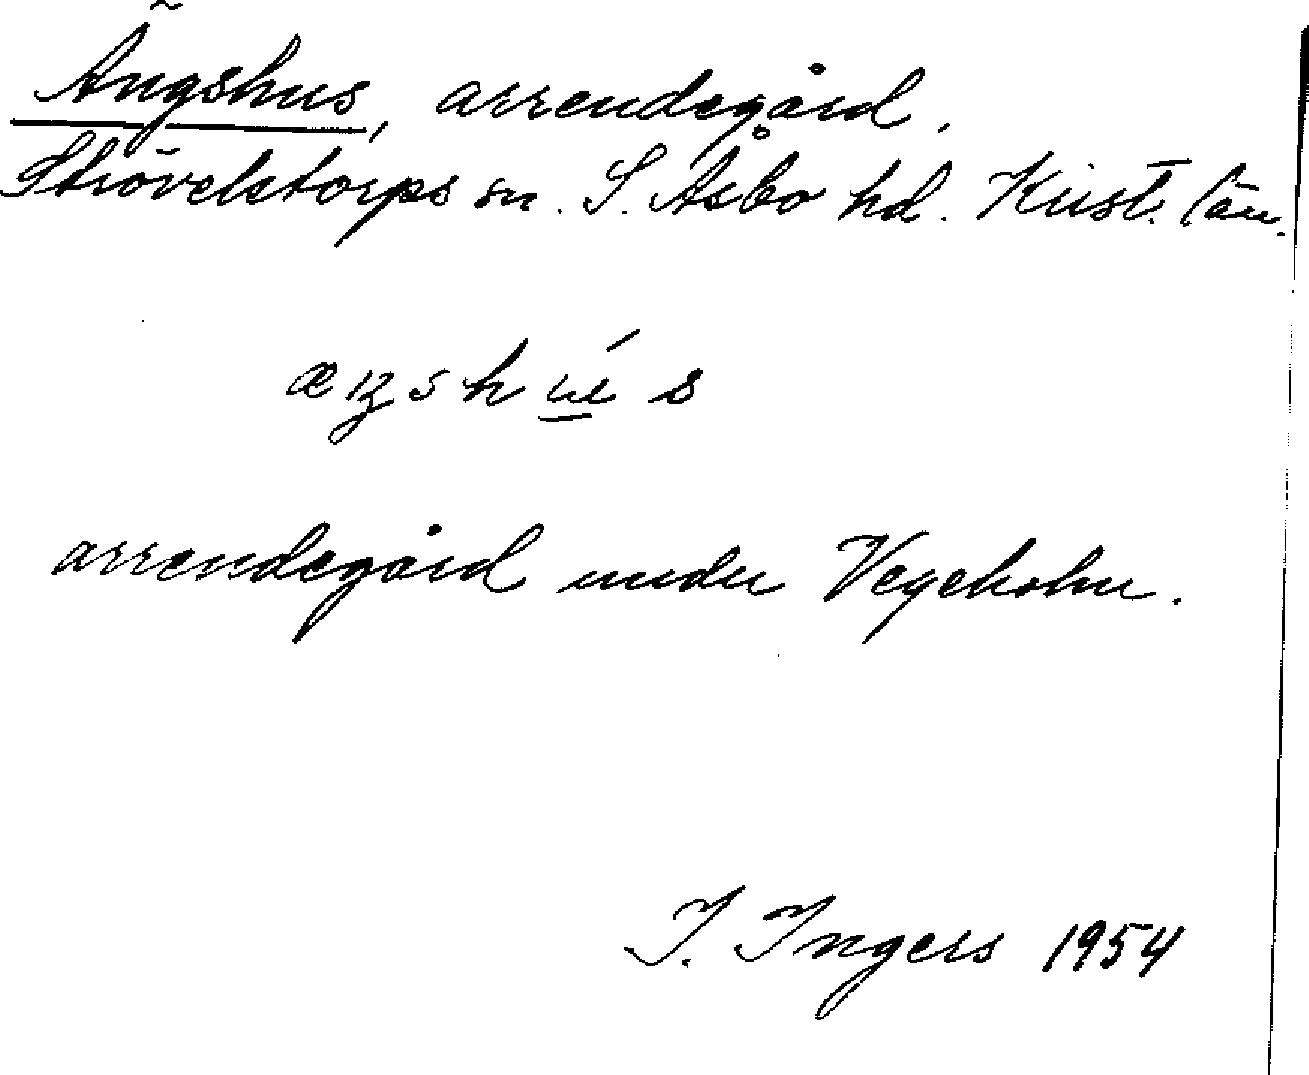 Ängshus, arrendegård.
Strövelstorps sn. S. Åsbo hd. Krist. län.
æŋshú̲s
arrendegård under Vegeholm.
I. Ingers 1954